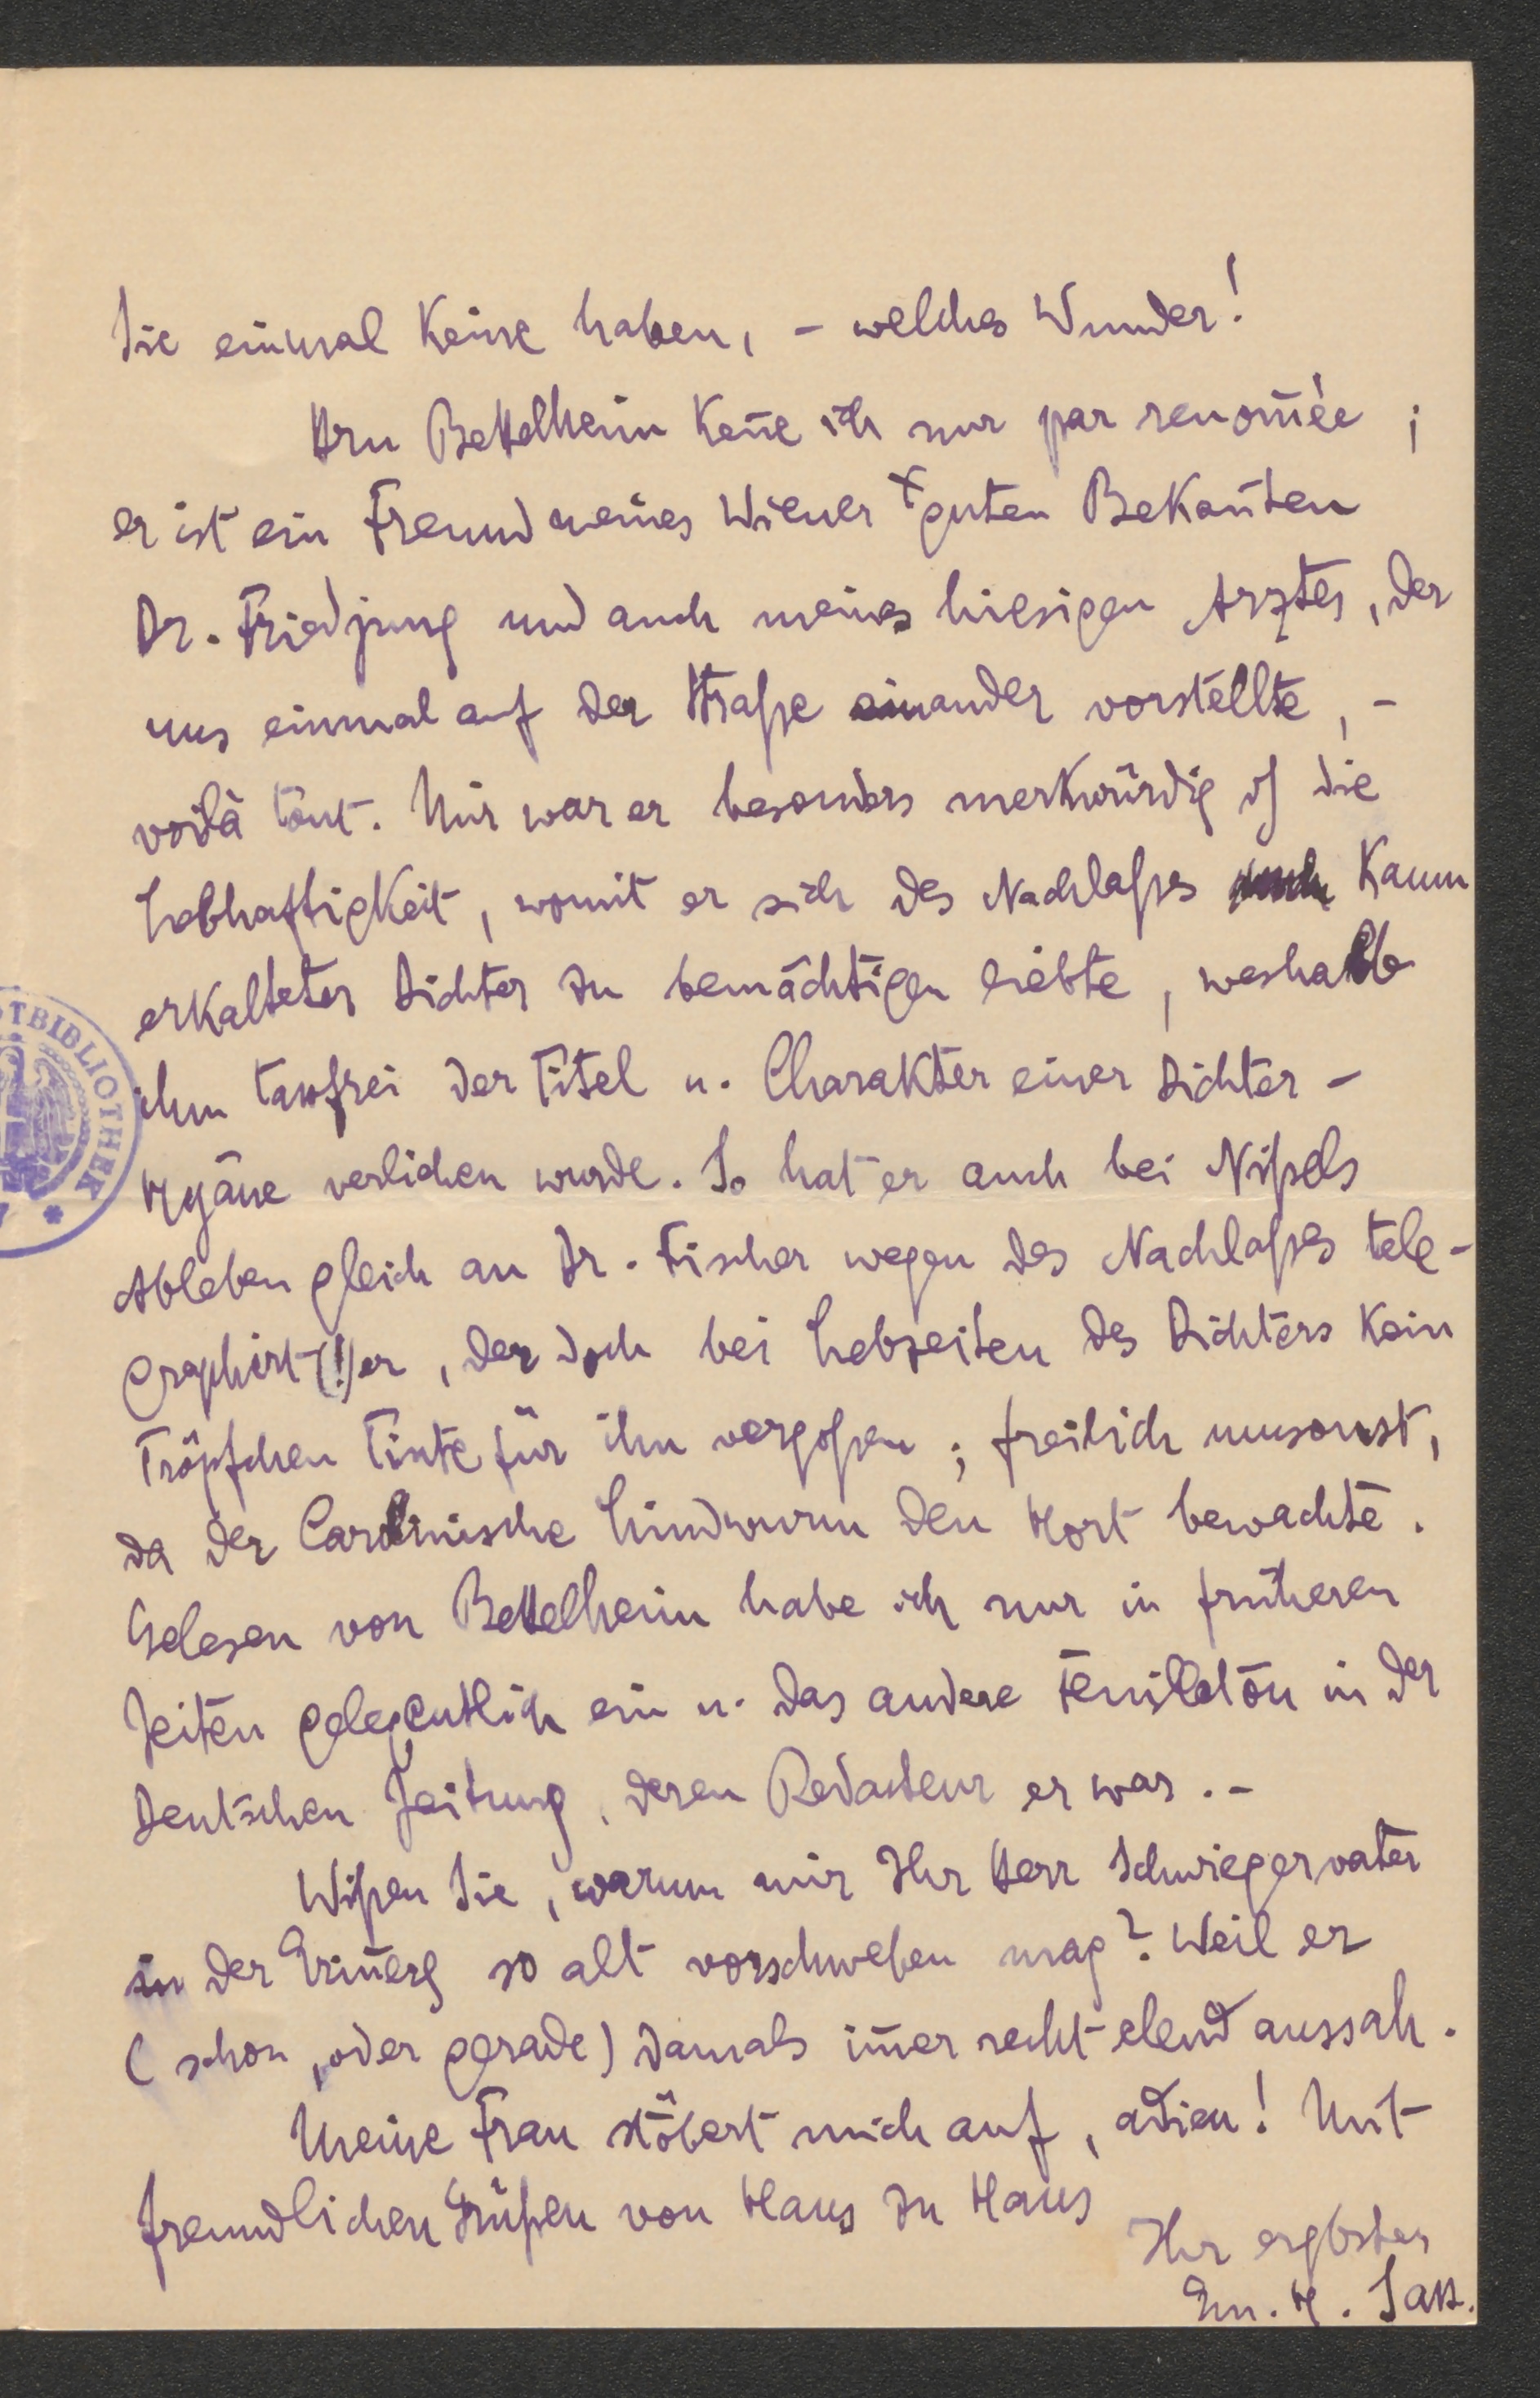 Sie einmal keine haben, – welches Wunder!
Hrn Bettelheim keñe ich nur par renom̃ée ;
er ist ein Freund meines Wiener + guten Bekañten
Dr. Friedjung und auch meines hiesigen Arztes, der
uns einmal auf der Straße einander vorstellte, –
voilà tout. Mir war er besonders merkwürdig d die
Lebhaftigkeit, womit er sich des Nachlaßes kaum
erkalteter Dichter zu bemächtigen liebte, weshalb
ihm taxfrei der Titel u. Charakter einer Dichter-
Hyäne verliehen wurde. So hat er auch bei Nißels
Ableben gleich an Dr. Fischer wegen des Nachlaßes tele-
graphirt (!) er, der doch bei Lebzeiten des Dichters kein
Tröpfchen Tinte für ihn vergoßen ; freilich umsonst,
da der Carolinische Lindwurm den Hort bewachte.
Gelesen von Bettelheim habe ich nur in früheren
Zeiten gelegentlich ein u. das andere Feuilleton in der
Deutschen Zeitung, deren Redacteur er war. –
Wißen Sie, warum mir Ihr Herr Schwiegervater
in der Eriñerg so alt vorschweben mag? Weil er
(schon, oder gerade) damals im̃er recht elend aussah.
Meine Frau stöbert mich auf, adieu! Mit
freundlichen Grüßen von Haus zu Haus
Ihr ergbster
Em. H. Sax.
TBIBLIOTHEK